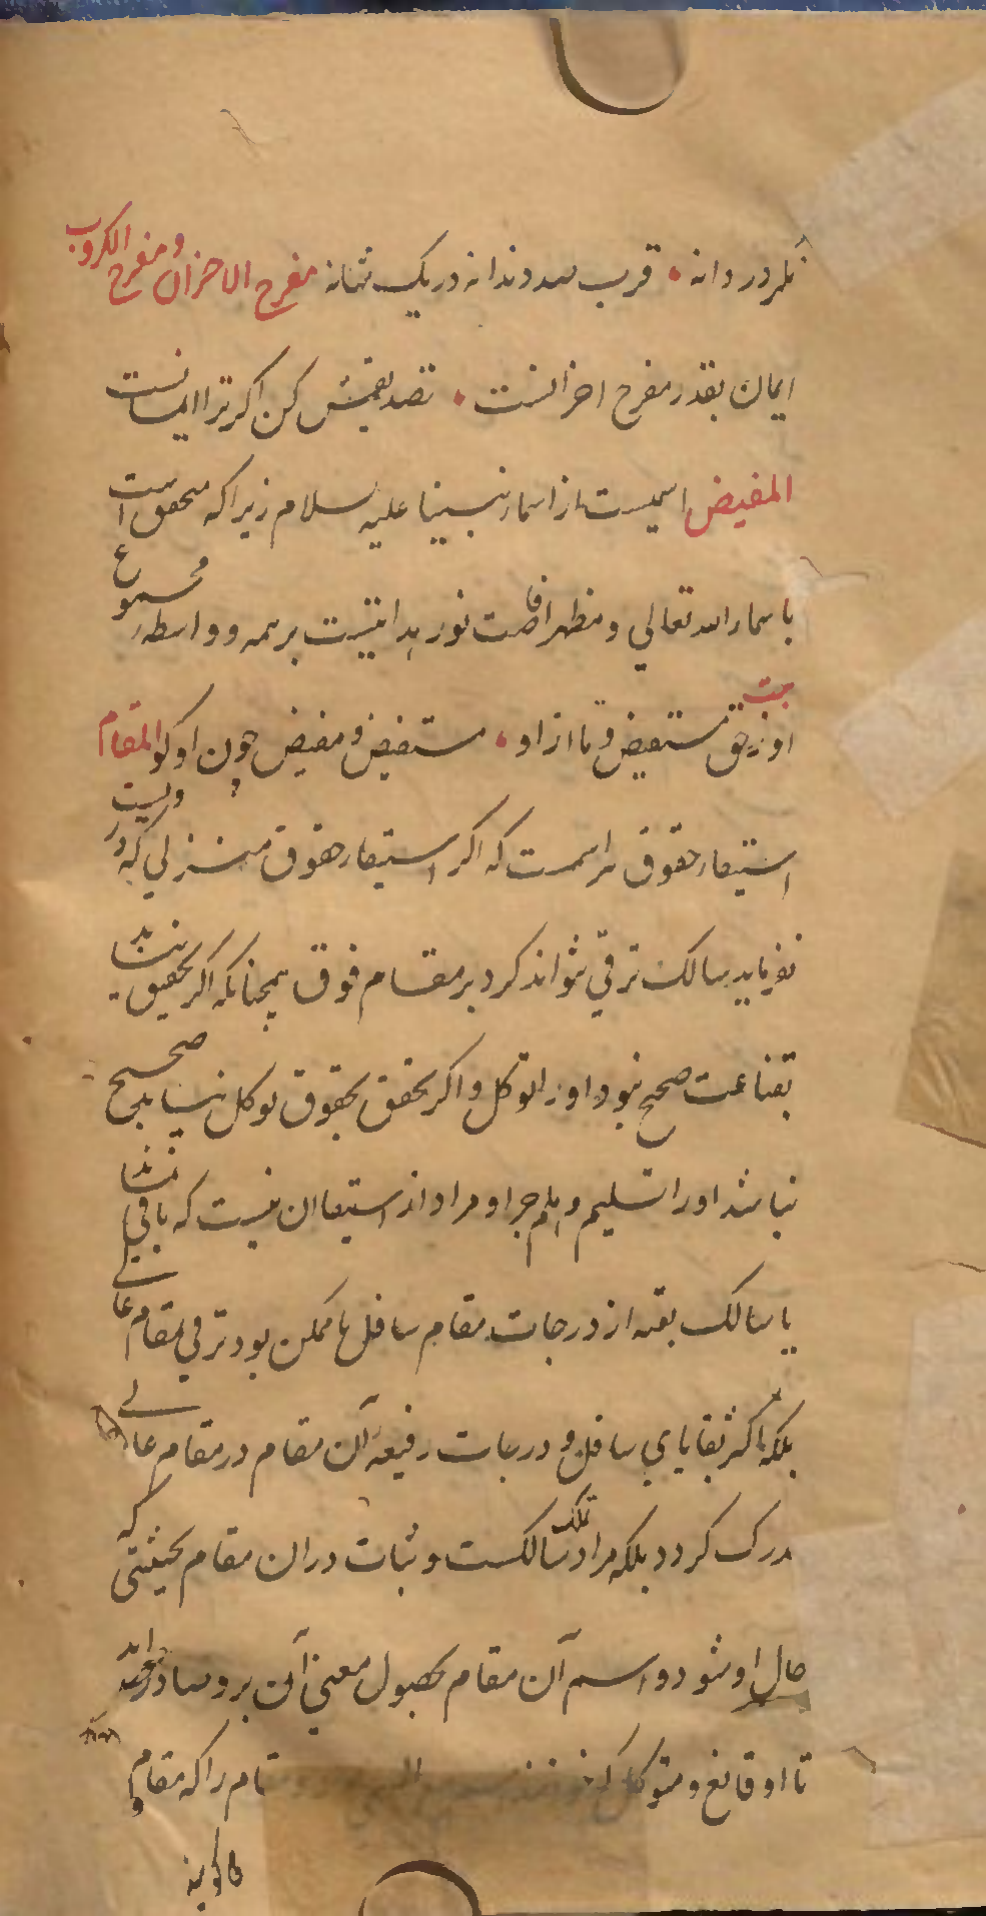 قرب صد دندانه در یک شانه مفرح الاحزان و مفرج الکروب
ایمان بقدر مفرح احزانست تصدیقش کن اکر ترا ایمانست
المفیض اسمیست از اسماء نبینا علیه السلام زیرا که متحقق است
باسماء الله تعالی و مظهر افاضت نور هدایتیست بر همه و واسطه مجموع
او ز حق مستفیض و ما از او مستفیض و مفیض چون او کو المقام
استیفاء حقوق مراسمست که اکر استیفاء حقوق منزلی که در ویست
نفرماید سالک ترقی نتواند کرد بر مقام فوق همچنانکه اکر تحقیق نیابد
بقناعت صحیح نبود او را توکل و اکر تحقق بحقوق توکل نیابد صحیح
نباشد او را تسلیم و هلم جرا و مراد از استیفا ان نیست که باقی نماند
با سالک بقیه از درجات مقام سافل تا ممکن بود ترقی بمقام عالی
بلکه اکثر بقایای سافل و درجات رفیعه آن مقام در مقام عالی
مدرک کردد بلکه مراد تملک سالکست و ثبات در ان مقام بحیثیتی که
حال او شود و اسم آن مقام بحصول معنی آن برو صادق اید
تا او قانع و متوکل را که مقام و